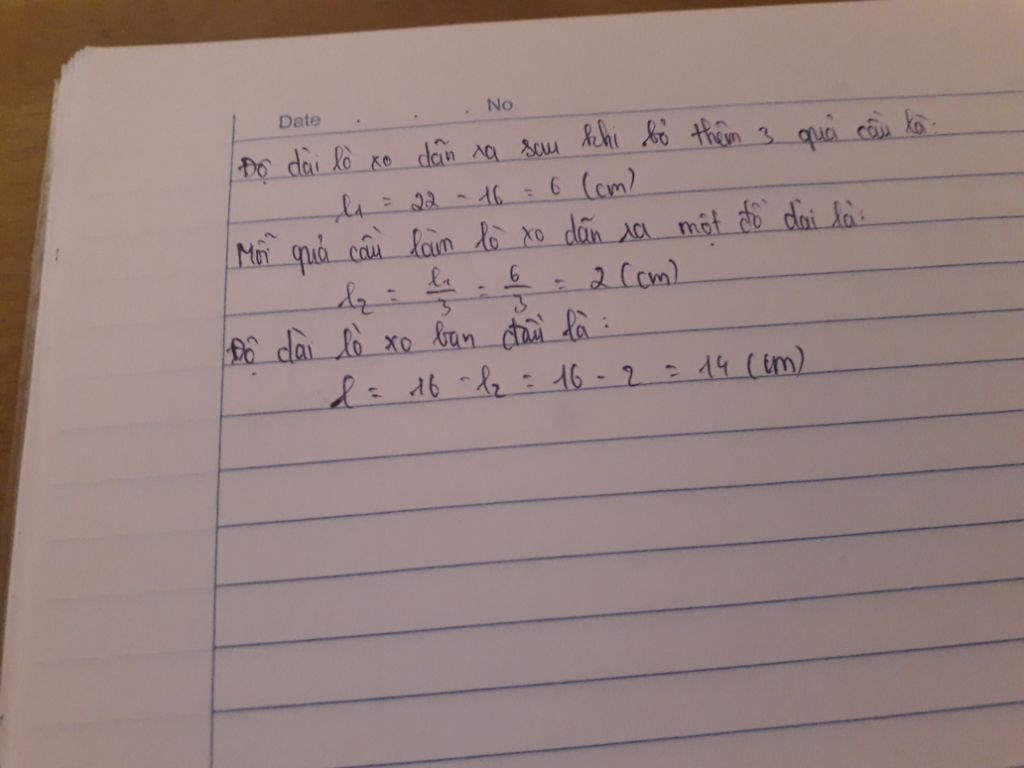 Date . . . No
Độ dài lò xo dãn ra sau khi bỏ thêm 3 quả cầu là:
l₁ = 22 - 16 = 6 (cm)
Mỗi quả cầu làm lò xo dãn ra một độ dài là:
l₂ = l₁/3 = 6/3 = 2 (cm)
Độ dài lò xo ban đầu là:
l = 16 - l₂ = 16 - 2 = 14 (cm)